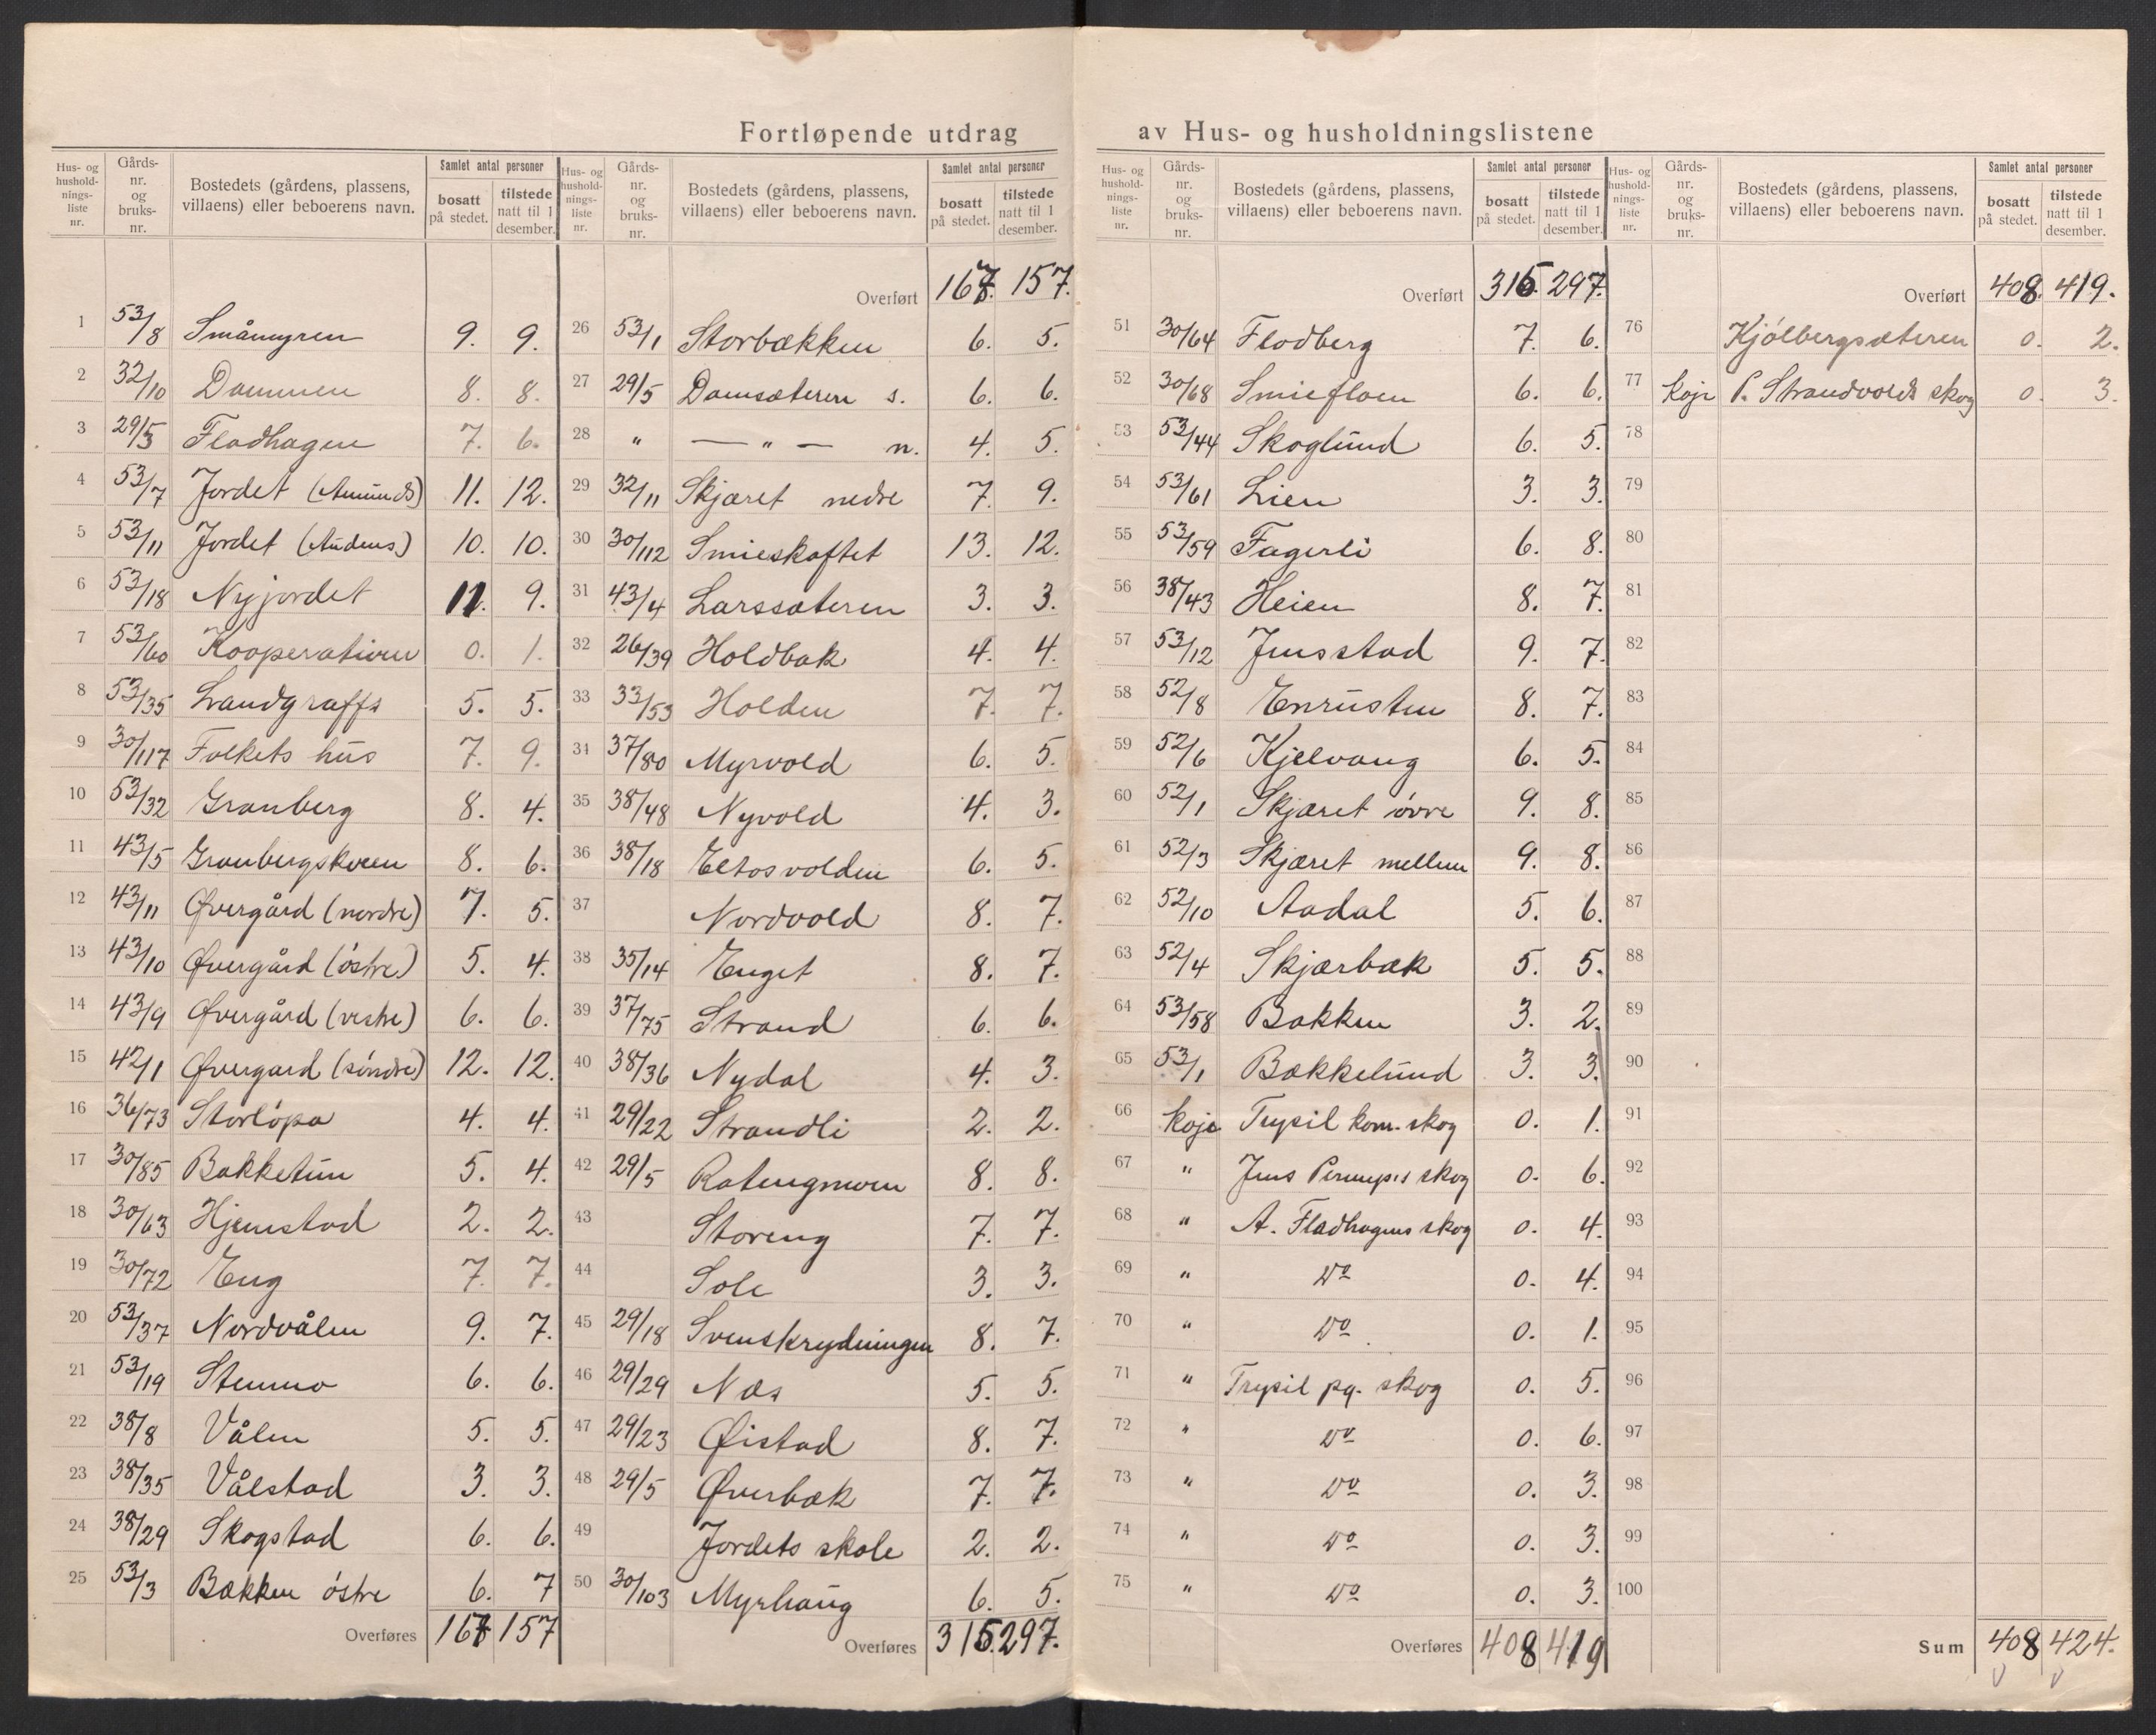 Fortløpende utdrag av Hus- og husholdningslistene
Hus- og husholdnings-liste nr. Gårds-nr. og bruks-nr. Bostedets (gårdens, plassens, villaens) eller beboerens navn. Samlet antal personer bosatt på stedet. tilstede natt til 1 desember.
1 53/8 Småmyren 9. 9.
2 32/10 Dammen 8. 8.
3 29/3 Fladhagen 7. 6.
4 53/7 Jordet (Amunds) 11. 12.
5 53/11 Jordet (Audens) 10. 10.
6 53/18 Nyjordet 11. 9.
7 53/60 Kooperativen 0. 1.
8 53/35 Landgraffs 5. 5.
9 30/117 Folkets hus 7. 9.
10 53/32 Granberg 8. 4.
11 43/5 Granbergskven 8. 6.
12 43/11 Øvergård (nordre) 7. 5.
13 43/10 Øvergård (östre) 5. 4.
14 43/9 Øvergård (vestre) 6. 6.
15 42/1 Øvergard (söndre) 12. 12.
16 36/73 Storlöpa 4. 4.
17 30/85 Bakketun 5. 4.
18 30/63 Hjemstad 2. 2.
19 30/72 Eng 7. 7.
20 53/37 Nordvålen 9. 7.
21 53/19 Stemmo 6. 6.
22 38/8 Vålen 5. 5.
23 38/35 Vålstad 3. 3.
24 38/29 Skogstad 6. 6.
25 53/3 Bækken östre 6. 7
Overføres 167 157
Hus- og husholdnings-liste nr. Gårds-nr. og bruks-nr. Bostedets (gårdens, plassens, villaens) eller beboerens navn. Samlet antal personer bosatt på stedet. tilstede natt til 1 desember.
Overført 167. 157.
26 53/1 Storbækken 6. 5.
27 29/5 Damsæteren s. 6. 6.
28 " — " — n. 4. 5.
29 32/11 Skjæret nedre 7. 9.
30 30/112 Smieskaftet 13. 12.
31 43/4 Larssæteren 3. 3.
32 26/39 Holdbak 4. 4.
33 33/53 Holden 7. 7.
34 37/80 Myrvold 6. 5.
35 38/48 Nyvold 4. 3.
36 38/18 Eltosvolden 6. 5.
37 Nordvold 8. 7.
38 35/14 Enget 8. 7.
39 37/75 Strand 6. 6.
40 38/36 Nydal 4. 3.
41 29/22 Strandli 2. 2.
42 29/5 Ratengmoen 8. 8.
43 Storeng 7. 7.
44 Sole 3. 3.
45 29/18 Svenskrydningen 8. 7.
46 29/29 Næs 5. 5.
47 29/23 Øistad 8. 7.
48 29/5 Øverbæk 7. 7.
49 Jordets skole 2. 2.
50 30/103 Myrhaug 6. 5.
Overføres 315. 297.
Hus- og husholdnings-liste nr. Gårds-nr. og bruks-nr. Bostedets (gårdens, plassens, villaens) eller beboerens navn. Samlet antal personer bosatt på stedet. tilstede natt til 1 desember.
Overført 315. 297.
51 30/64 Flodberg 7. 6.
52 30/68 Smiefloen 6. 6.
53 53/44 Skoglund 6. 5.
54 53/61 Lien 3. 3.
55 53/59 Fagerli 6. 8.
56 38/43 Heien 8. 7.
57 53/12 Jensstad 9. 7.
58 52/8 Enrusten 8. 7.
59 52/6 Kjelvang 6. 5.
60 52/1 Skjæret övre 9. 8.
61 52/3 Skjæret mellem 9. 8.
62 52/10 Aadal 5. 6.
63 52/4 Skjærbæk 5. 5.
64 53/58 Bakken 3. 2.
65 53/1 Bækkelund 3. 3.
66 Koje Trysil kom. skog 0. 1.
67 " Jens skog 0. 6.
68 " A. Fladhagens skog 0. 4.
69 " Do 0. 4.
70 " Do 0. 1.
71 " Trysil pg. skog 0. 5.
72 " Do 0. 6.
73 " Do 0. 3.
74 " Do 0. 3.
75 " Do 0. 3.
Overføres 408 419
Hus- og husholdnings-liste nr. Gårds-nr. og bruks-nr. Bostedets (gårdens, plassens, villaens) eller beboerens navn. Samlet antal personer bosatt på stedet. tilstede natt til 1 desember.
Overført 408. 419.
76 Kjölbergsæteren 0. 2.
77 Koje P. Strandvolds skog 0. 3.
78
79
80
81
82
83
84
85
86
87
88
89
90
91
92
93
94
95
96
97
98
99
100
Sum 408 424.